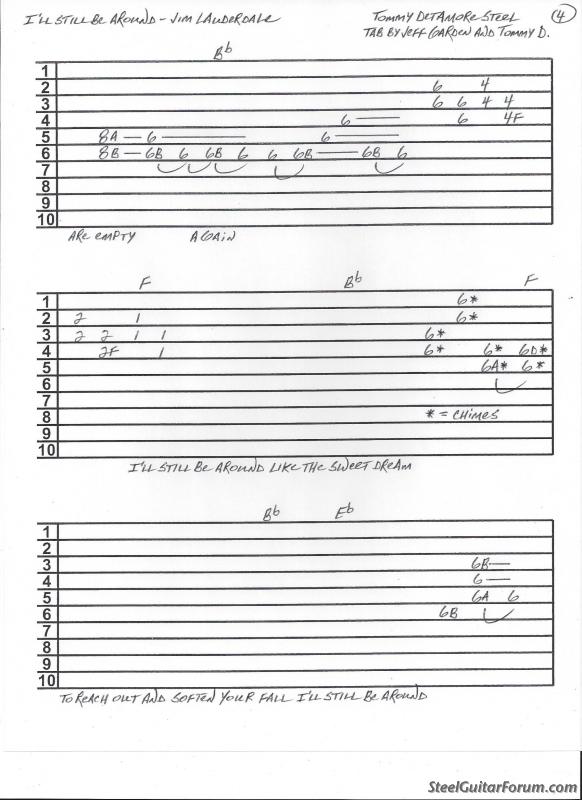 I'LL STILL BE AROUND - JIM LAUDERDALE TOMMY DETAMORE STEEL 4
TAB BY JEFF GARDEN AND TOMMY D.
Bb
1
2 6 4
3 6 6 4 4
4 6 6 4F
5 8A 6 6
6 8B 6B 6 6B 6 6 6B 6B 6
7
8
9
10
ARE EMPTY AGAIN
F Bb F
1 6*
2 2 1 6*
3 2 2 1 1 6*
4 2F 1 6* 6* 6D*
5 6A* 6*
6
7
8 * = CHIMES
9
10
I'LL STILL BE AROUND LIKE THE SWEET DREAM
Bb Eb
1
2
3 6B
4 6
5 6A 6
6 6B
7
8
9
10
TO REACH OUT AND SOFTEN YOUR FALL I'LL STILL BE AROUND
SteelGuitarForum.com